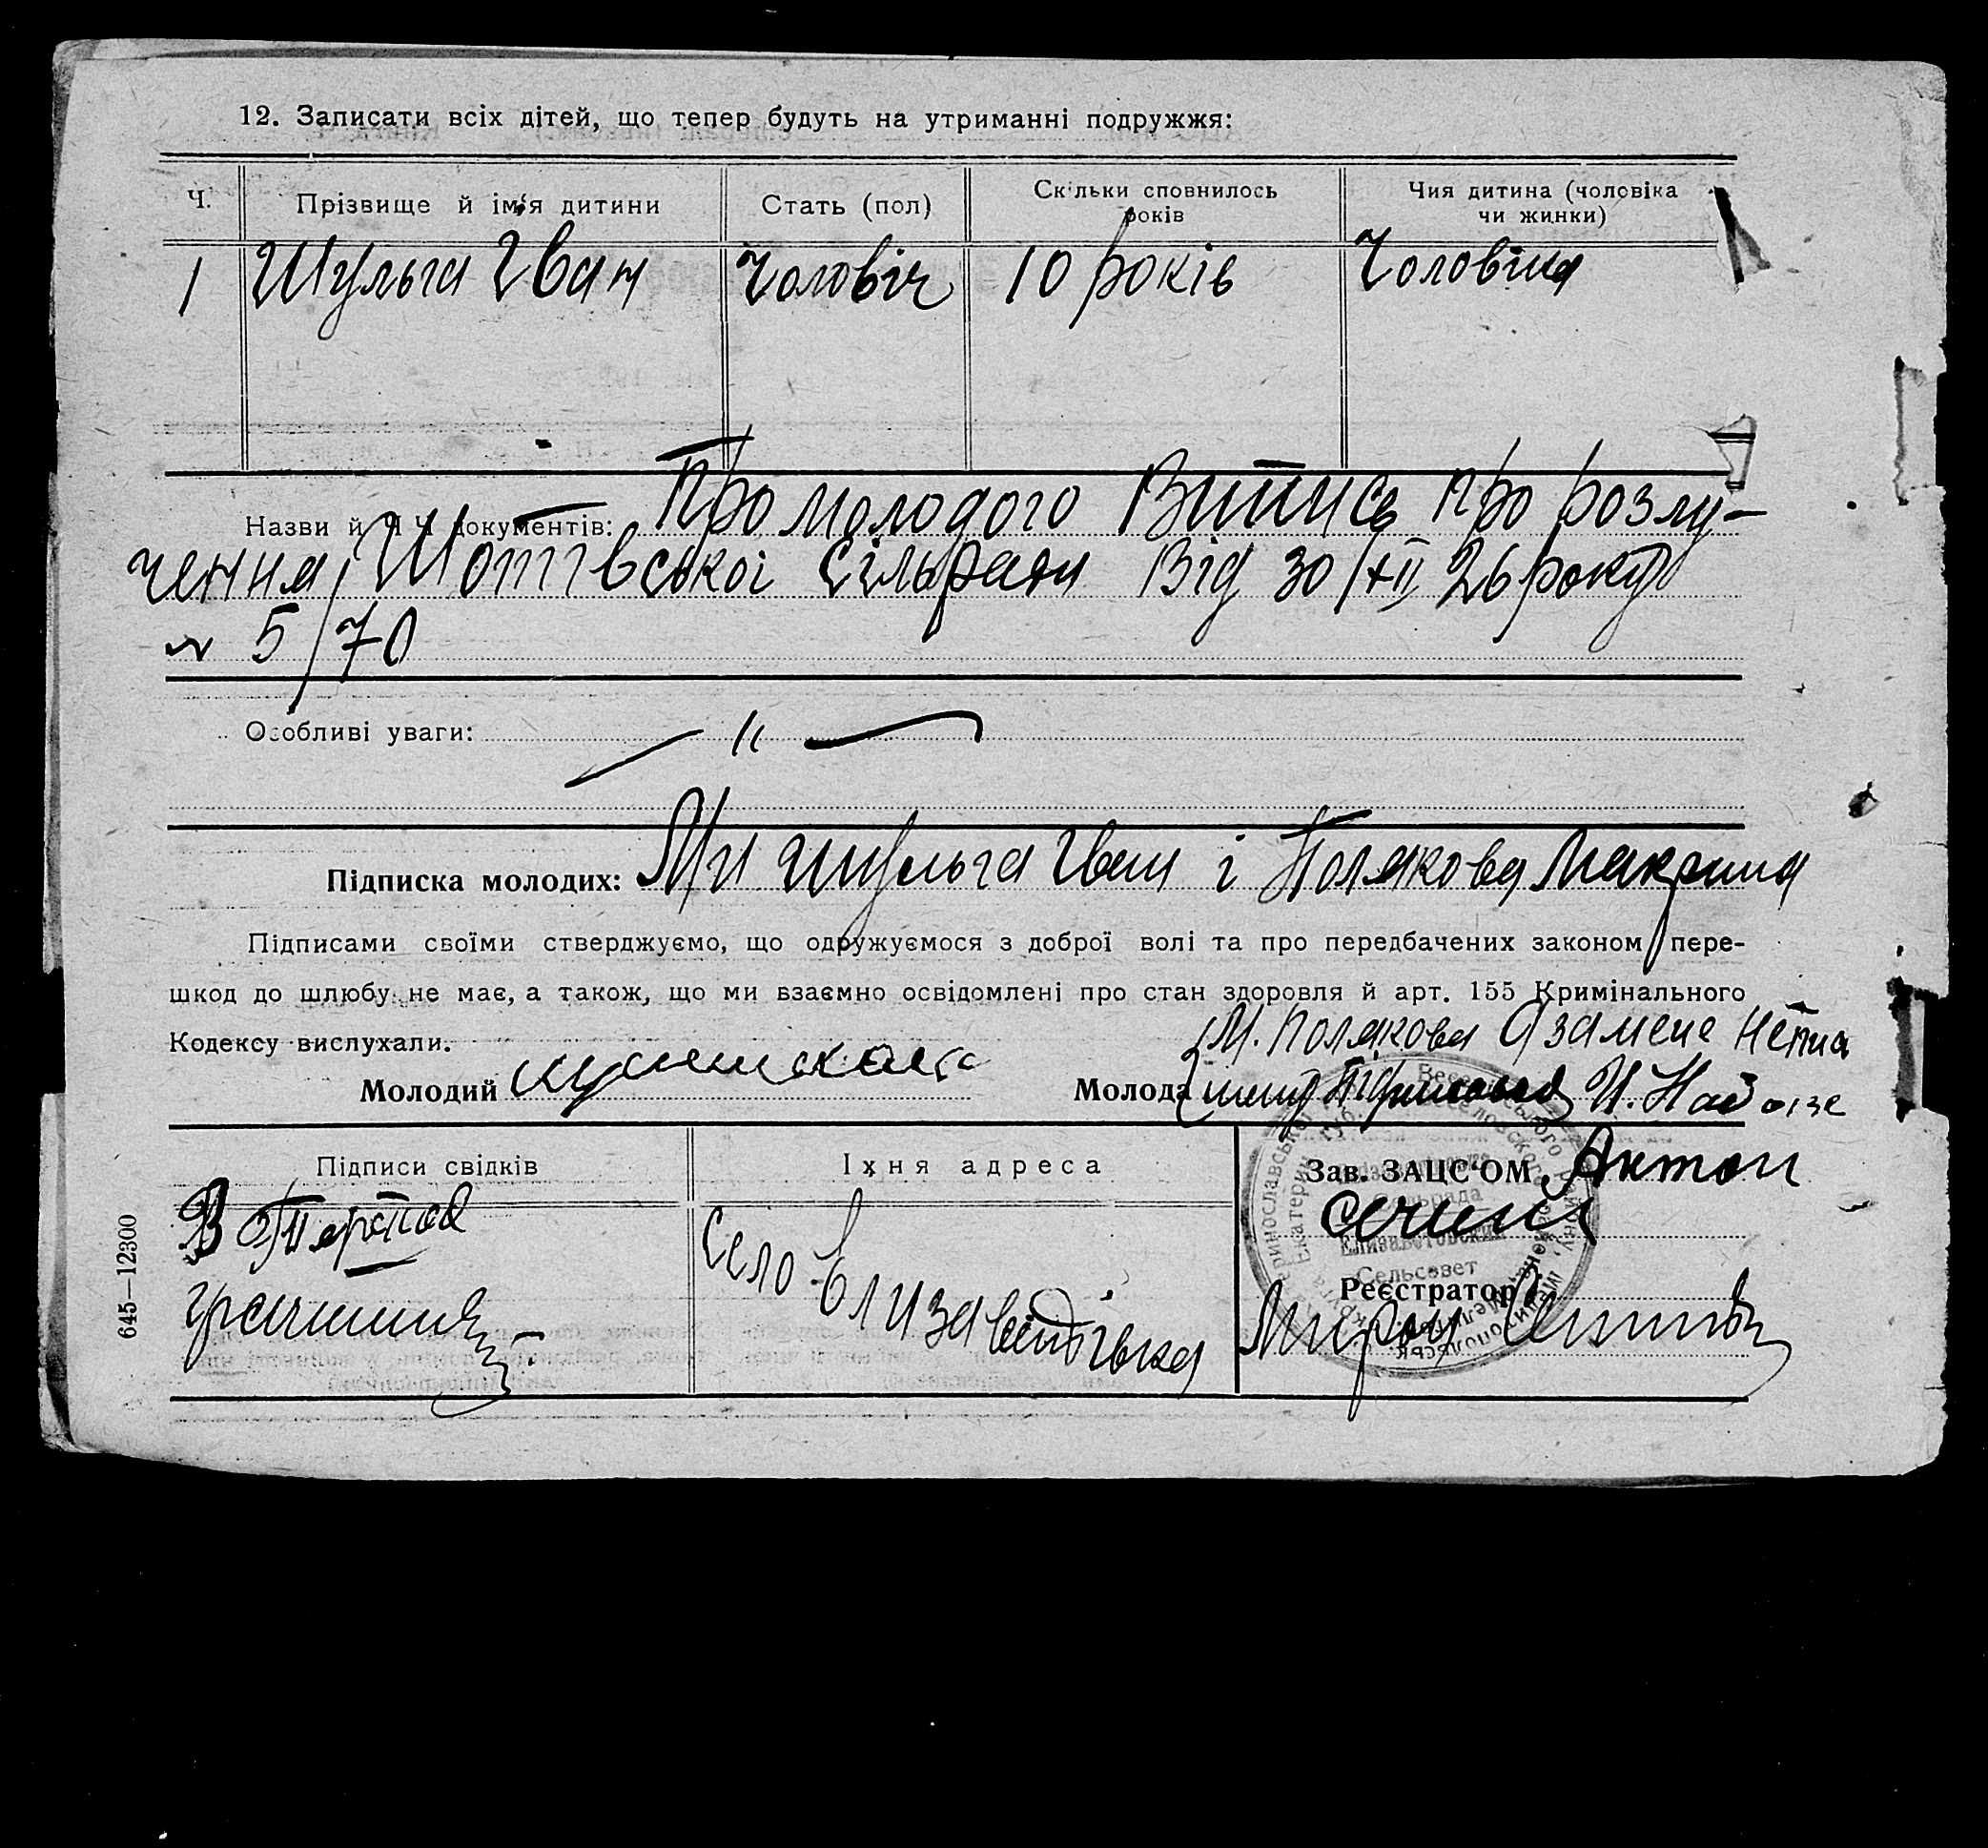 12. Записати всіх дітей, що тепер будуть на утриманні подружжя:
Ч. Прізвище й ім'я дитини Стать (пол) Скільки сповнилось років Чия дитина (чоловіка чи жинки)
1 Шульга Іван Чоловіч 10 років Чоловіка
Назви й Ч Ч документів: Про молодого Витись про розлу-
чення Шотівської сільради Від 30/XII 26 року
№ 5/70
Особливі уваги: — " —
Підписка молодих: Ми Шульга Іван і Полякова Макрина
Підписами своїми стверджуємо, що одружуємося з доброї волі та про передбачених законом пере-
шкод до шлюбу не має, а також, що ми взаємно освідомлені про стан здоровля й арт. 155 Кримінального
Кодексу вислухали.
М. Полякова
Молодий
Молода
Підписи свідків Їхня адреса Зав. ЗАЦС'ОМ Антон
село Єлизаветівка
Реєстратор
Мирон
Елизаветовский
Сельсовет
645—12300